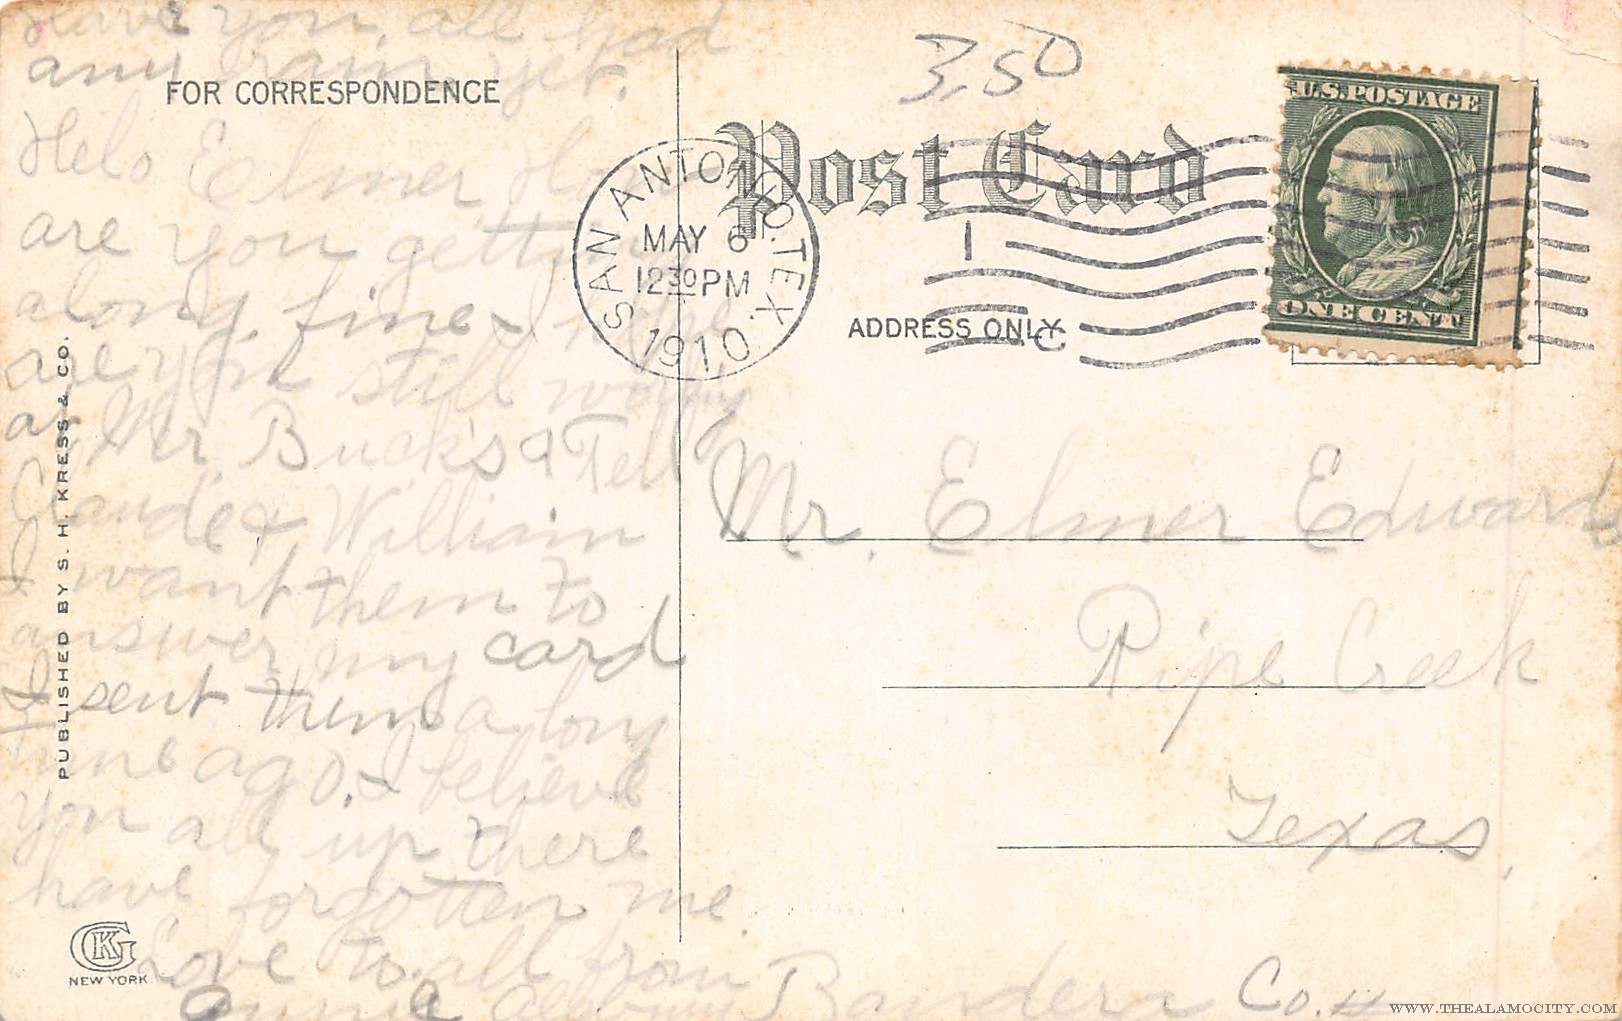 have you all had
any rain yet.
FOR CORRESPONDENCE
Helo Elmer
are you
along fine I hope
are you still
at Mr. Bucks Tell
Claude & William
I want them to
answer my card
I sent them a long
time ago. I believe
you all up there
have forgotten me
Love to all from
PUBLISHED BY S. H. KRESS & CO.
GK
NEW YORK
3,50
Post Card
SAN ANTONIO. TEX.
MAY 6
12 30 PM
1910
1
C
U.S. POSTAGE
ONE CENT
ADDRESS ONLY
Mr. Elmer Edwards
Pipe Creek
Texas,
Bandera Co.
WWW.THEALAMOCITY.COM